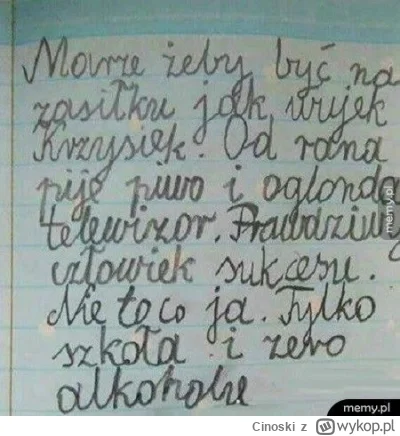 Marze żeby być na
zasiłku jak wujek
Krzysiek. Od rana
pije piwo i oglonda
telewizor. Prawdziwy
człowiek sukcesu.
Nie to co ja. Tylko
szkoła i zero
alkoholu
memy.pl
memy.pl
Cinoski z wykop.pl